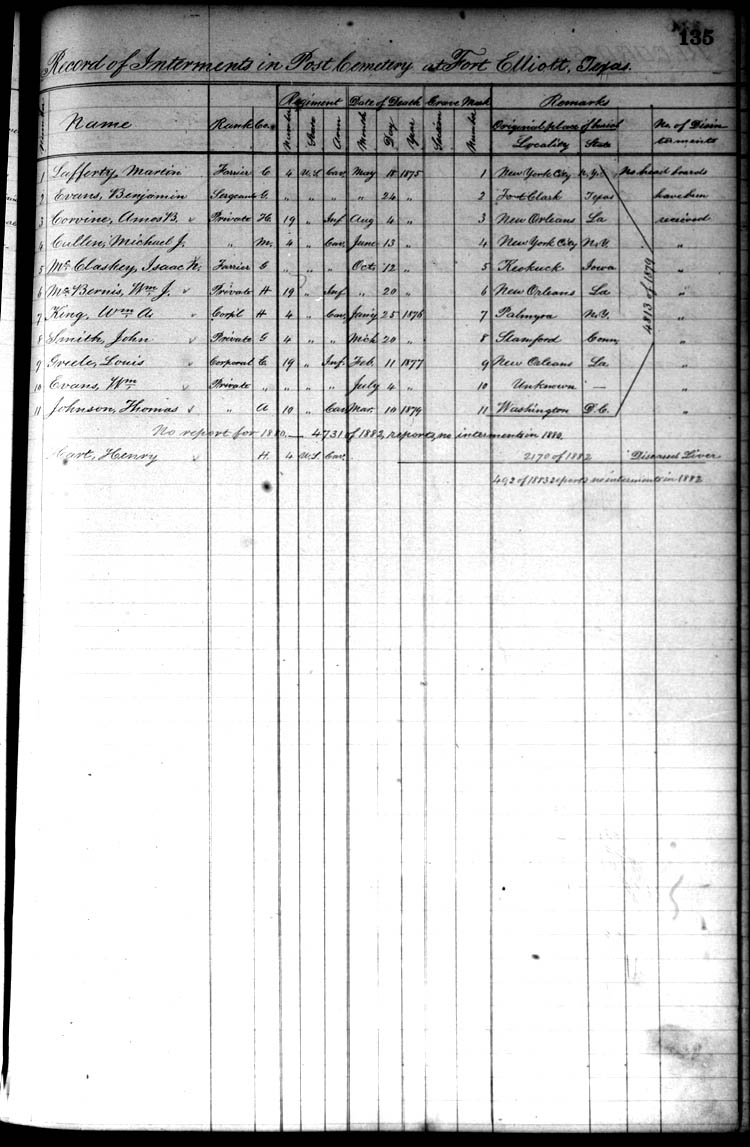 135
Record of Interments in Post Cemetery at Fort Elliott, Texas.
Regiment Date of Death Grave Mark Remarks
Number Name Rank Co. Number State Arm Month Day Year Section Number Original place of burial Locality State No. of Disinterments
1 Lafferty, Martin Farrier C 4 U.S. Cav. May 18 1875 1 New York City N.Y. No head boards
2 Evans, Benjamin Sergeant G. " " " " 24 " 2 Fort Clark Texas have been
3 Corvine, Amos B. v Private H. 19 " Inf. Aug 4 " 3 New Orleans La received
4 Cullen, Michael J. " M. 4 " Cav. June 13 " 4 New York City N.Y. "
5 McClaskey, Isaac N. Farrier G " " " Oct. 12 " 5 Keokuck Iowa "
6 McBernis, Wm J. v Private H 19 " Inf. " 20 " 6 New Orleans La "
7 King, Wm A. v Corp'l H 4 " Cav. Jan'y 25 1876 7 Palmyra N.Y. "
8 Smith, John v Private G 4 " " Mch 20 " 8 Stamford Conn. "
9 Greele, Louis v Corporal C. 19 " Inf. Feb. 11 1877 9 New Orleans La "
10 Evans, Wm v Private " " " " July 4 " 10 Unknown — "
11 Johnson, Thomas v " A 10 " Cav. Mar. 10 1879 11 Washington D.C. "
4813 of 1879
No report for 1880. — 4731 of 1882, reports no interments in 1882.
Hart, Henry v H. 4 U.S. Cav. 2170 of 1882 Diseased Liver
492 of 1883 reports no interments in 1882